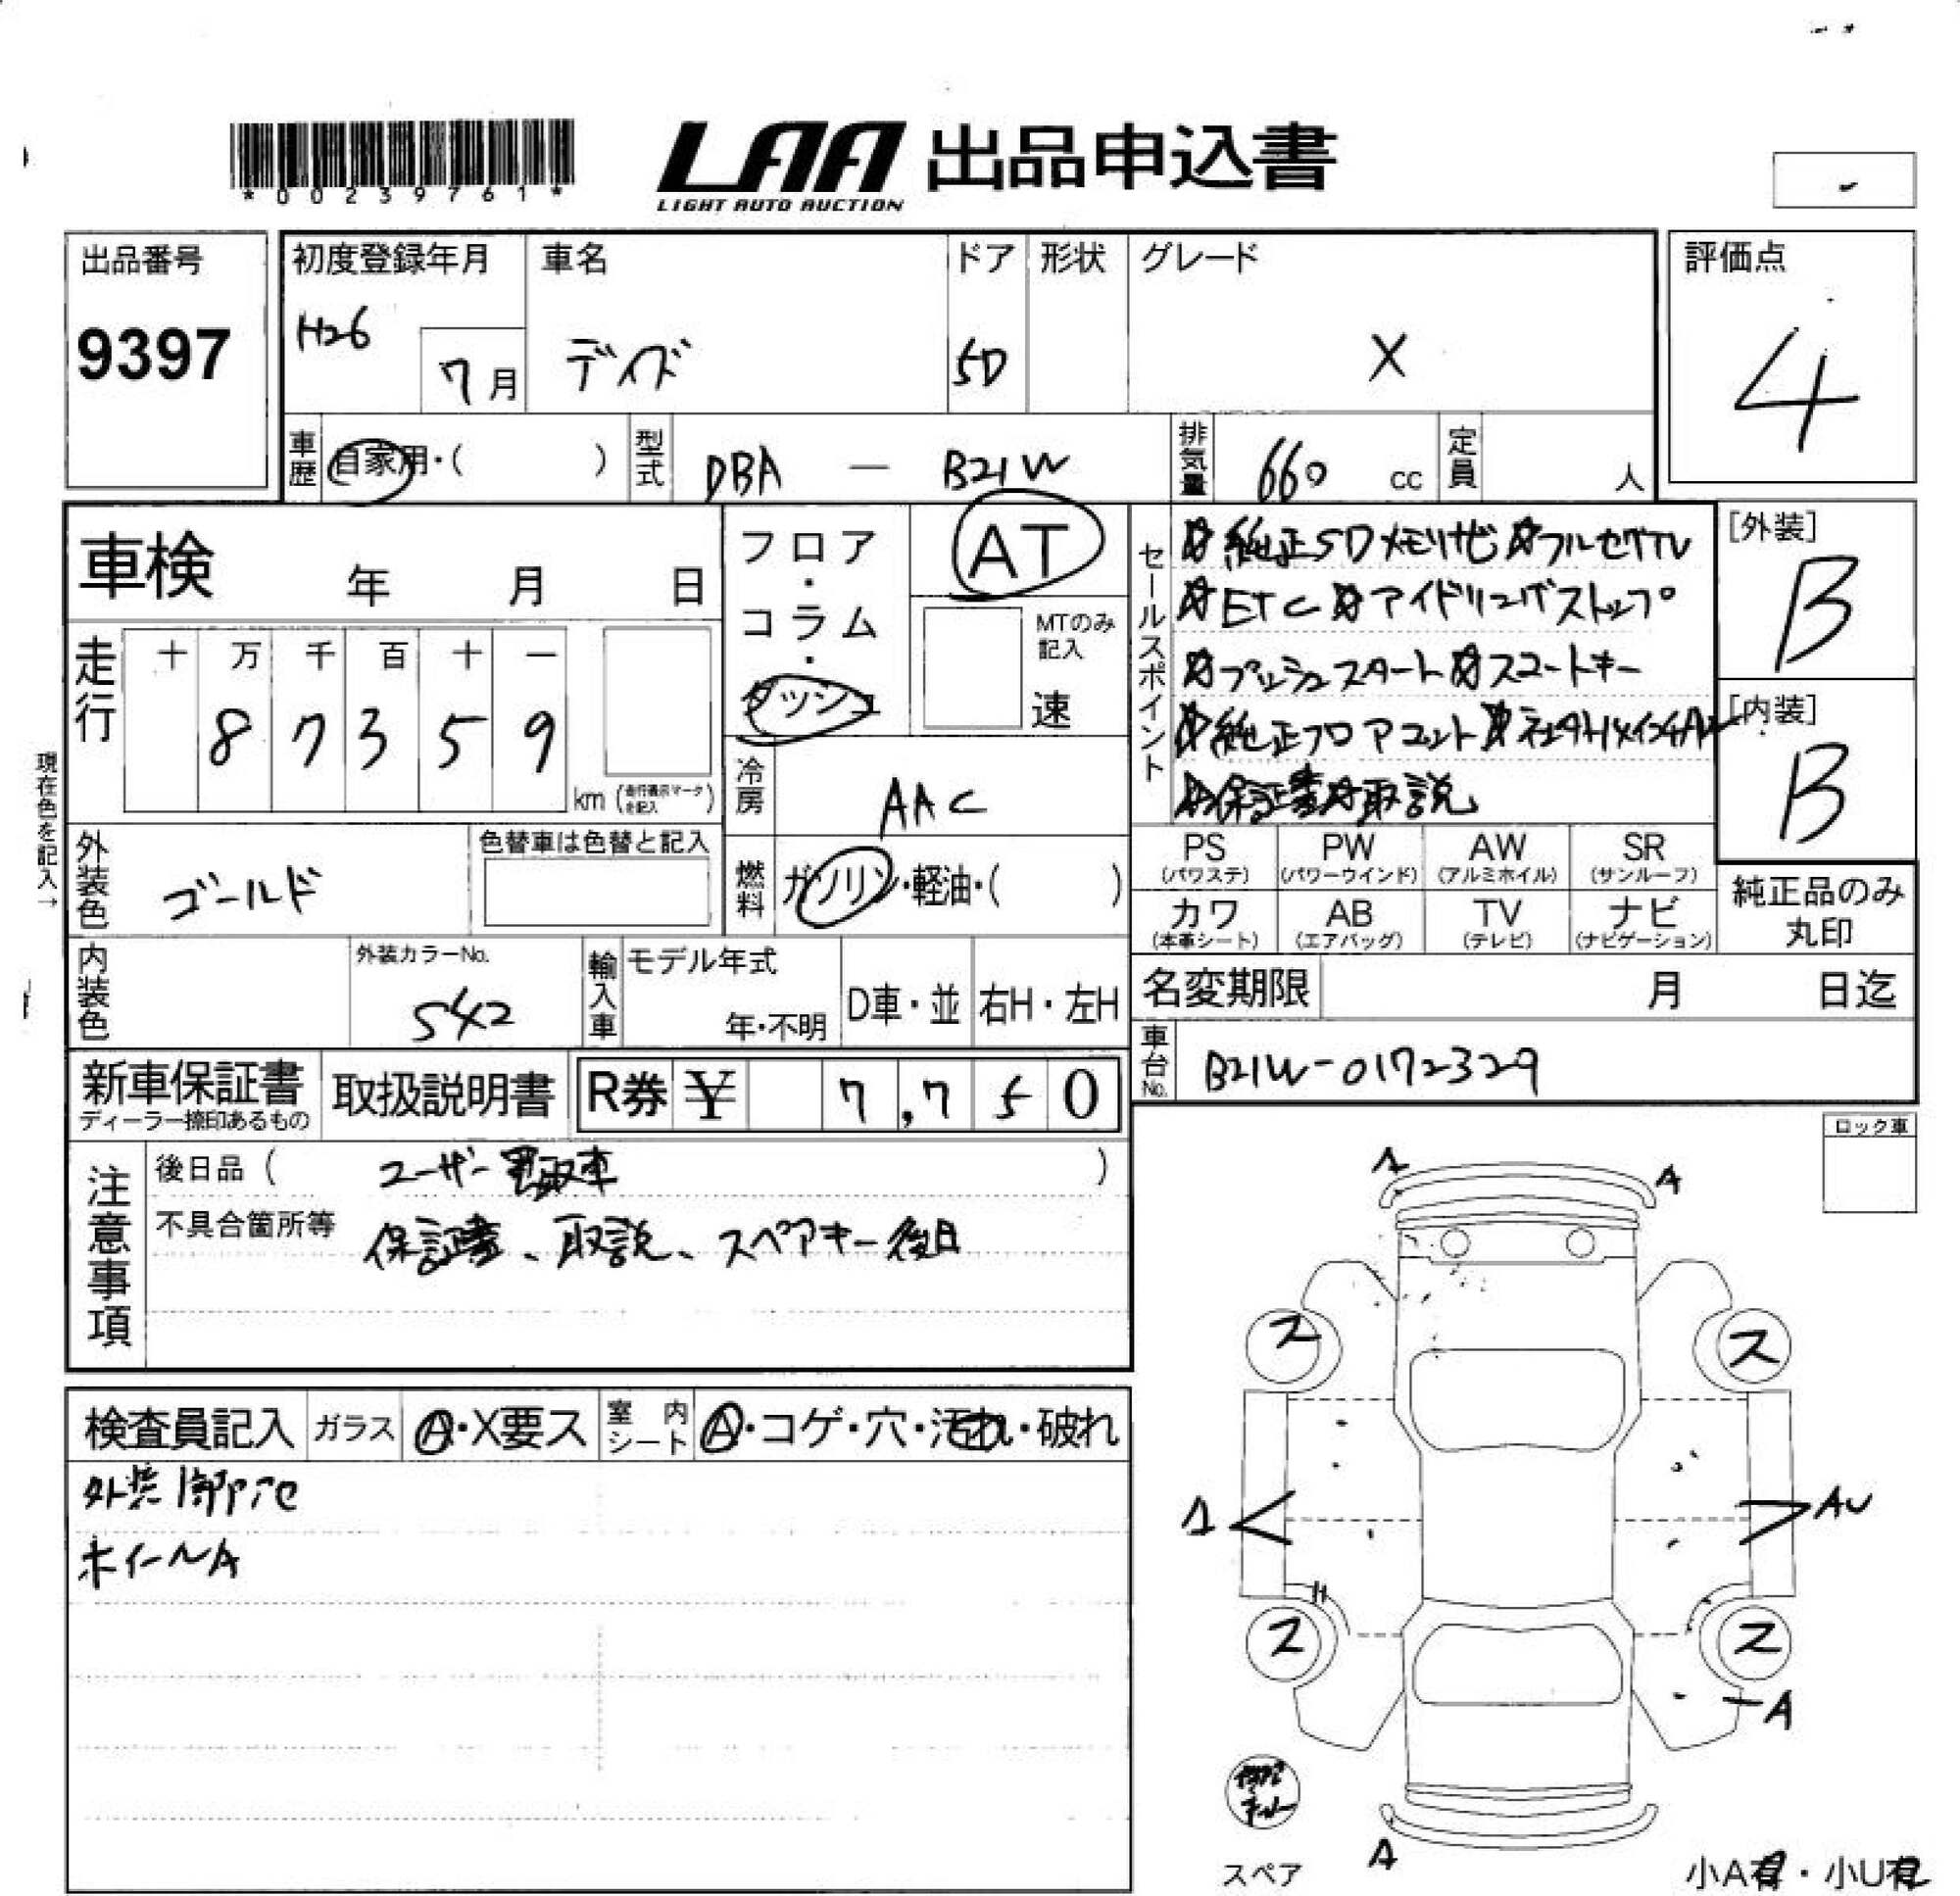 *00239761*
LAA 出品申込書
LIGHT AUTO AUCTION
出品番号
9397
初度登録年月
H26
7月
車名
デイズ
ドア
5D
形状
グレード
X
評価点
4
車歴 自家用・( )
型式 DBA — B21W
排気量 660 cc
定員 人
車検 年 月 日
走行
十 万 千 百 十 一
8 7 3 5 9
km (走行表示マークを記入)
現在色を記入→
フロア・コラム・ダッシュ
AT
MTのみ記入
速
冷房 AAC
燃料 ガソリン・軽油・( )
外装色 ゴールド
色替車は色替と記入
内装色
外装カラーNo.
542
輸入車
モデル年式
年・不明
D車・並
右H・左H
セールスポイント
☆純正SDメモリナビ☆フルセグTV
☆ETC☆アイドリングストップ
☆プッシュスタート☆スマートキー
☆純正フロアマット
☆保証書☆取説
[外装]
B
[内装]
B
PS (パワステ)
PW (パワーウインド)
AW (アルミホイル)
SR (サンルーフ)
カワ (本革シート)
AB (エアバッグ)
TV (テレビ)
ナビ (ナビゲーション)
純正品のみ丸印
名変期限 月 日迄
車台No. B21W-0172329
新車保証書
ディーラー捺印あるもの
取扱説明書
R券 ¥ 7,750
注意事項
後日品 ( ユーザー買取車 )
不具合箇所等 保証書、取説、スペアキー後日
ロック車
検査員記入
ガラス A・X要ス
室内シート A・コゲ・穴・汚れ・破れ
ホイールA
A
A
ス
ス
A
AU
ス
ス
A
スペア
A
小A有・小U有